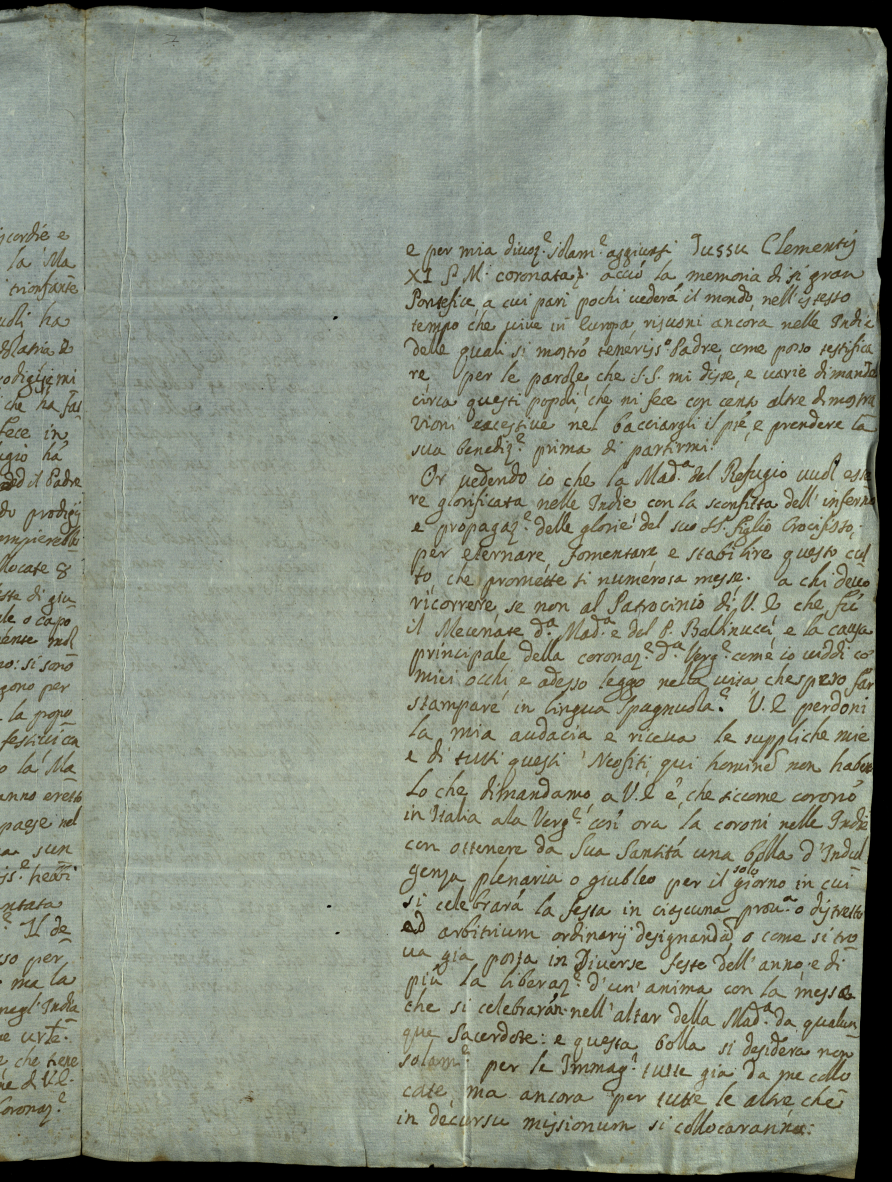 scordie e
la Ma
i trionfante
uoli ha
che ha fat
fece in
ugio ha
il Padre
do prodigij
llocate
iste di giu
le o capo
no: si sono
gono per
la propo
o la Ma
anno eretto
paese nel
a sun
ntata
Il de
so per
ma la
negl' India
che tiene
Coronaz.e
e per mia diuoz.e solam.e aggiunsi Jussu Clementij
XI P. M. coronata acciò la memoria di si gran
Pontefice, a cui pari pochi uederà il mondo, nell' istesso
tempo che uiue in Europa, risuoni ancora nelle Indie
delle quali si mostrò teneriss.o Padre, come posso testifica
re per le parole che S.S. mi disse, e uarie dimande
circa questi popoli, che mi fece con cent' altre dimostra
zioni eccessiue nel bacciargli il piè, e prendere la
sua benediz.e prima di partirmi.
Or uedendo io che la Mad.a del Refugio uuol esse
re glorificata nelle Indie con la sconfitta dell' inferno
e propagaz.e delle glorie del suo SS. figlio Crocifisso,
per eternare, fomentare e stabilire questo cul
to, che promette si numerosa messe. a chi deuo
ricorrere, se non al Patrocinio di V. E che fù
il Mecenate d.a Mad.a e del P. Baldinucci e la causa
principale della coronaz.e d.a Uerg.e come io uiddi co
miei occhi e adesso leggo nella uita, che spero far
stampare in lingua Spagnuola. V. E perdoni
la mia audacia e riceua le suppliche mie
e di tutti questi Neofiti, qui hominem non habent
Lo che dimandamo a V. E è, che siccome coronò
in Italia ala Verg.e così ora la coroni nelle Indie
con ottenere da Sua Santità una bolla d' Indul
genza plenaria o giubleo per il solo giorno in cui
si celebrarà la festa in ciascuna prou.a o distretto
ad arbitrium ordinarij designanda, o come si tro
ua gia posta in Diuerse feste dell' anno. e di
più la liberaz.e d' un' anima con la messa
che si celebrarán nell' altar della Mad.a da qualun
que Sacerdote: e questa bolla si desidera non
solam.e per le Immag.i tutte gia da me collo
cate, ma ancora per tutte le altre che
in decursu missionum si collocaranno: